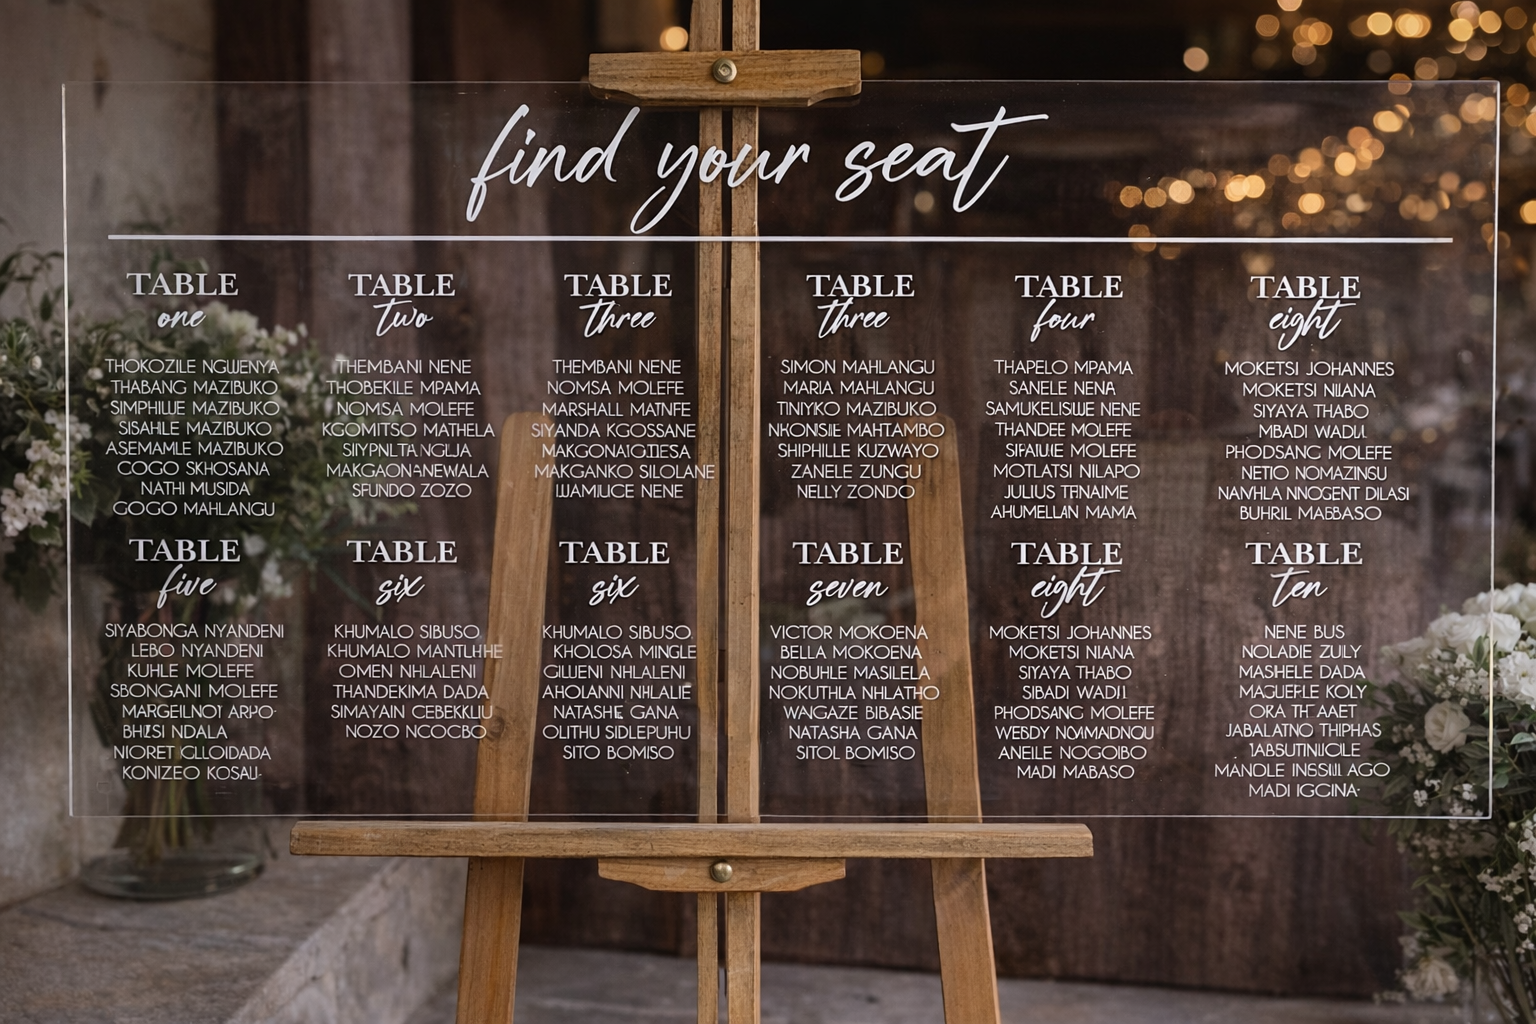 find your seat
TABLE
one
THOKOZILE NGWENYA
THABANG MAZIBUKO
SIMPHIUE MAZIBUKO
SISAHLE MAZIBUKO
ASEMAMLE MAZIBUKO
COGO SKHOSANA
NATHI MUSIDA
GOGO MAHLANGU
TABLE
two
THEMBANI NENE
THOBEKILE MPAMA
NOMSA MOLEFE
KGOMITSO MATHELA
SFUNDO ZOZO
TABLE
three
THEMBANI NENE
NOMSA MOLEFE
MARSHALL
SIYANDA KGOSSANE
MAKGANKO SILOLANE
NENE
TABLE
three
SIMON MAHLANGU
MARIA MAHLANGU
TINIYKO MAZIBUKO
MAHTAMBO
SHIPHILLE KUZWAYO
ZANELE ZUNGU
NELLY ZONDO
TABLE
four
THAPELO MPAMA
SANELE
NENE
THANDEE MOLEFE
MOLEFE
MOTLATSI NILAPO
JULIUS
MAMA
TABLE
eight
MOKETSI JOHANNES
MOKETSI
SIYAYA THABO
MBADI
PHODSANG MOLEFE
NETIO NOMAZINSU
DILASI
MABBASO
TABLE
five
SIYABONGA NYANDENI
LEBO NYANDENI
KUHLE MOLEFE
SBONGANI MOLEFE
NDALA
KONIZEO
TABLE
six
KHUMALO SIBUSO
KHUMALO
OMEN NHLALENI
THANDEKIMA DADA
SIMAYAIN
NOZO NCOCBO
TABLE
six
KHUMALO SIBUSO
KHOLOSA MINGLE
NHLALENI
AHOLANNI NHLALIE
NATASHE GANA
OLITHU SIDLEPUHU
SITO BOMISO
TABLE
seven
VICTOR MOKOENA
BELLA MOKOENA
NOBUHLE MASILELA
NOKUTHLA NHLATHO
WAIGAZE BIBASIE
NATASHA GANA
SITOL BOMISO
TABLE
eight
MOKETSI JOHANNES
MOKETSI NIANA
SIYAYA THABO
SIBADI
PHODSANG MOLEFE
NOGOIBO
MADI MABASO
TABLE
ten
NENE BUS
NOLADIE ZULY
MASHELE DADA
KOLY
JABALATNO THIPHAS
AGO
MADI